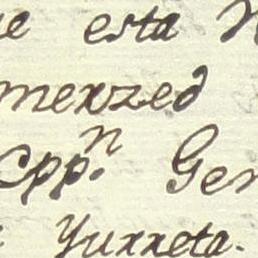 e esta N
merzed
Cpp.n Gen
Yurreta.